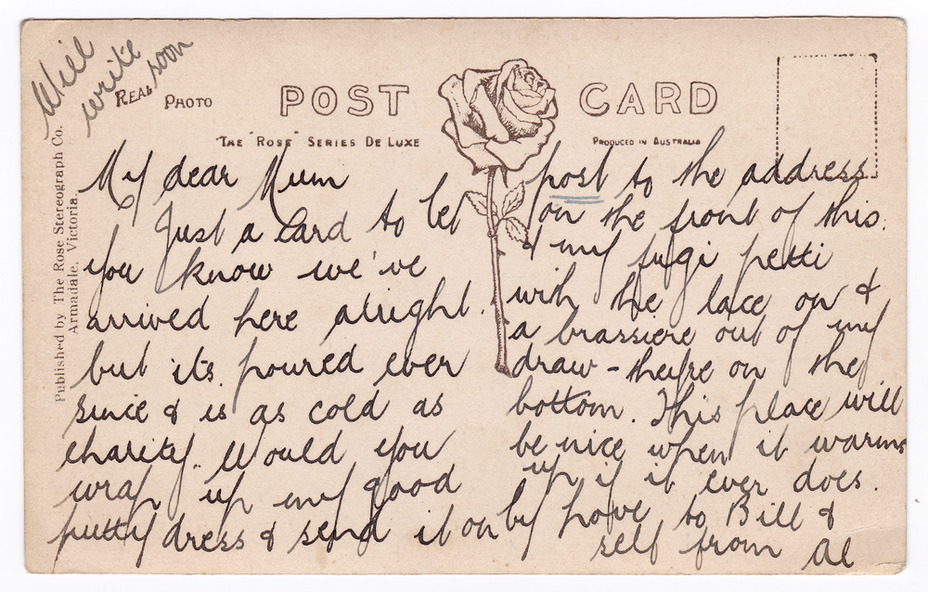 Will
write
soon
REAL PHOTO
POST CARD
THE "ROSE" SERIES DE LUXE
PRODUCED IN AUSTRALIA
Published by The Rose Stereograph Co.
Armadale, Victoria.
My dear Mum
Just a Card to let
you know we've
arrived here alright.
but its poured ever
since & is as cold as
charity. Would you
wrap up my good
putty dress & send it on by
post to the address
on the front of this.
& my fugi petti
with the lace on &
a brassiere out of my
draw - they're on the
bottom. This place will
be nice when it warms
up if it ever does.
love to Bill &
self from Al